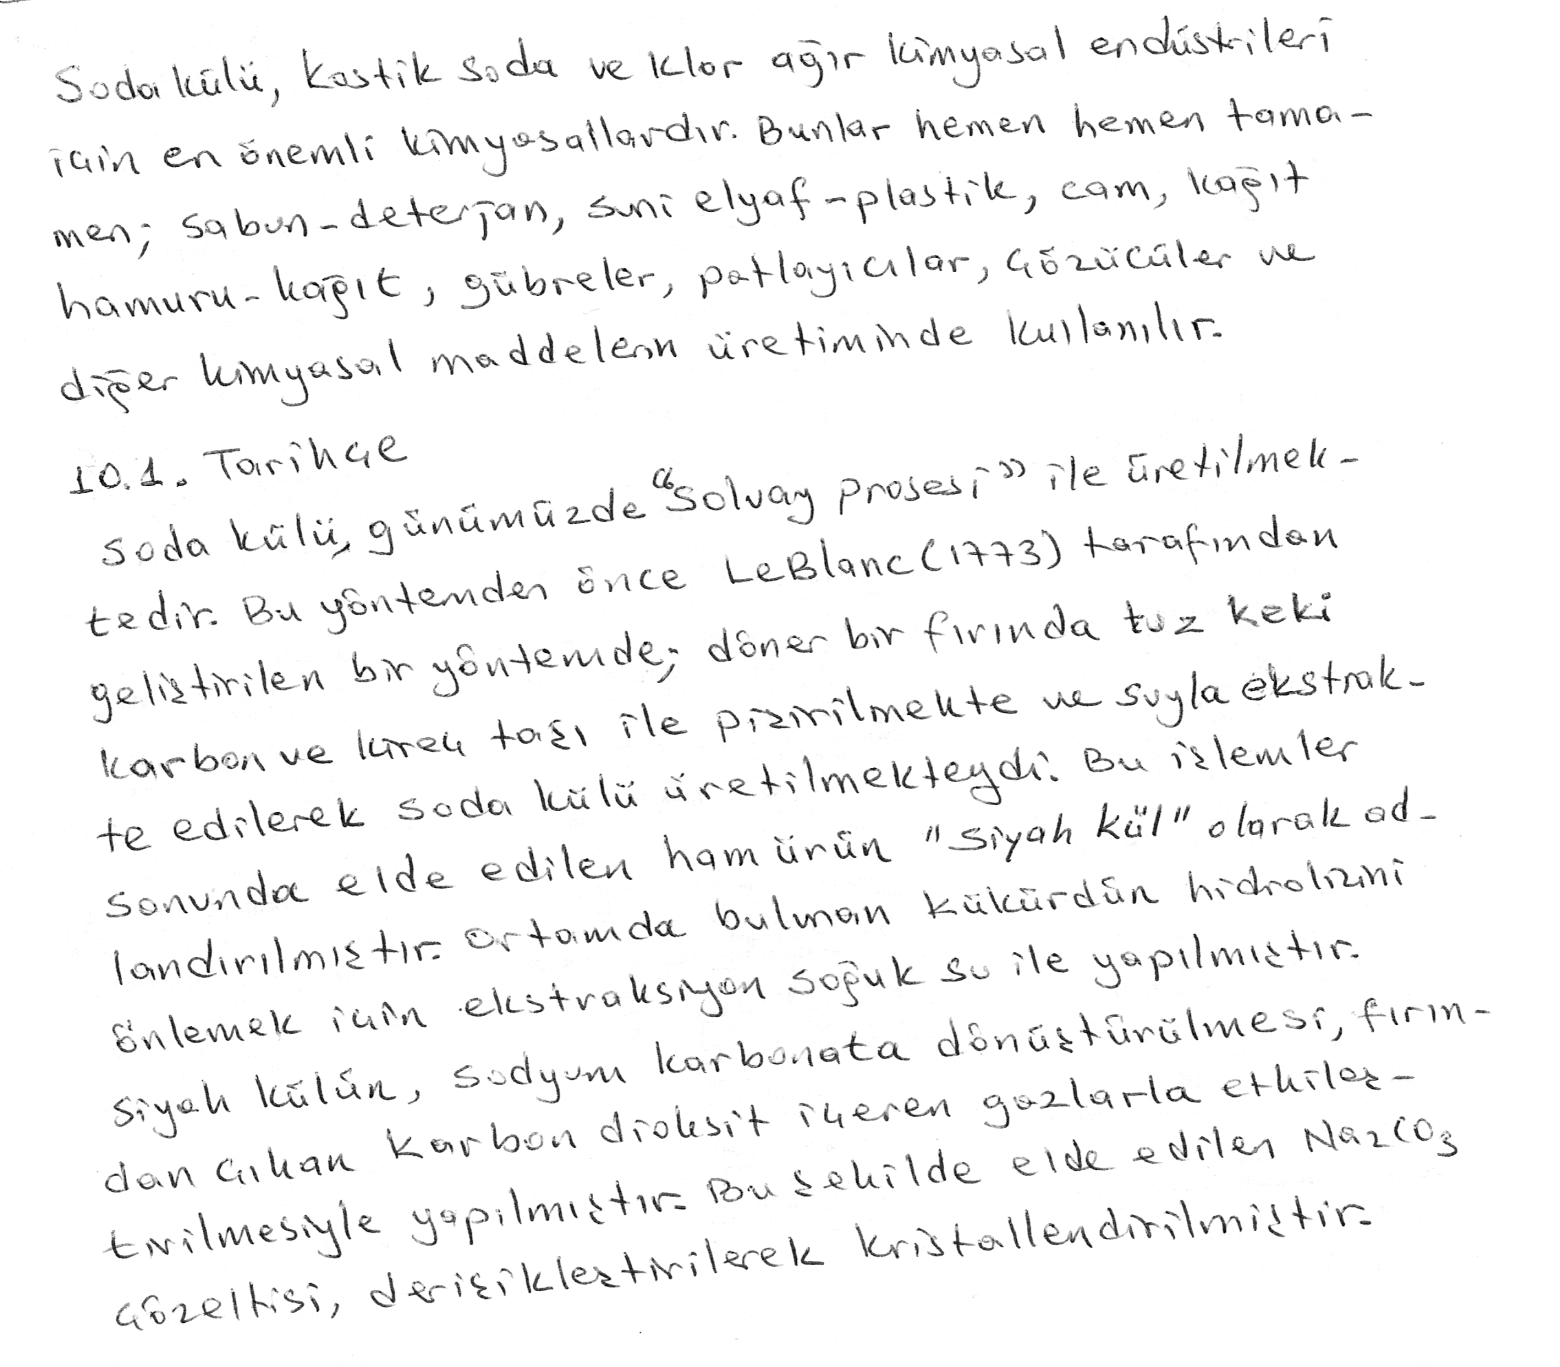 Soda külü, kostik soda ve klor ağır kimyasal endüstrileri
için en önemli kimyasallardır. Bunlar hemen hemen tama-
men; sabun-deterjan, suni elyaf-plastik, cam, kağıt
hamuru-kağıt, gübreler, patlayıcılar, çözücüler ve
diğer kimyasal maddelerin üretiminde kullanılır.
10.1. Tarihçe
Soda külü, günümüzde "Solvay prosesi" ile üretilmek-
tedir. Bu yöntemden önce LeBlanc (1773) tarafından
geliştirilen bir yöntemde; döner bir fırında tuz keki
karbon ve kireç taşı ile pişirilmekte ve suyla ekstrak-
te edilerek soda külü üretilmekteydi. Bu işlemler
sonunda elde edilen ham ürün "siyah kül" olarak ad-
landırılmıştır. Ortamda bulunan kükürdün hidrolizini
önlemek için ekstraksiyon soğuk su ile yapılmıştır.
Siyah külün, sodyum karbonata dönüştürülmesi, fırın-
dan çıkan karbon dioksit içeren gazlarla etkileş-
tirilmesiyle yapılmıştır. Bu şekilde elde edilen Na2CO3
çözeltisi, derişikleştirilerek kristallendirilmiştir.